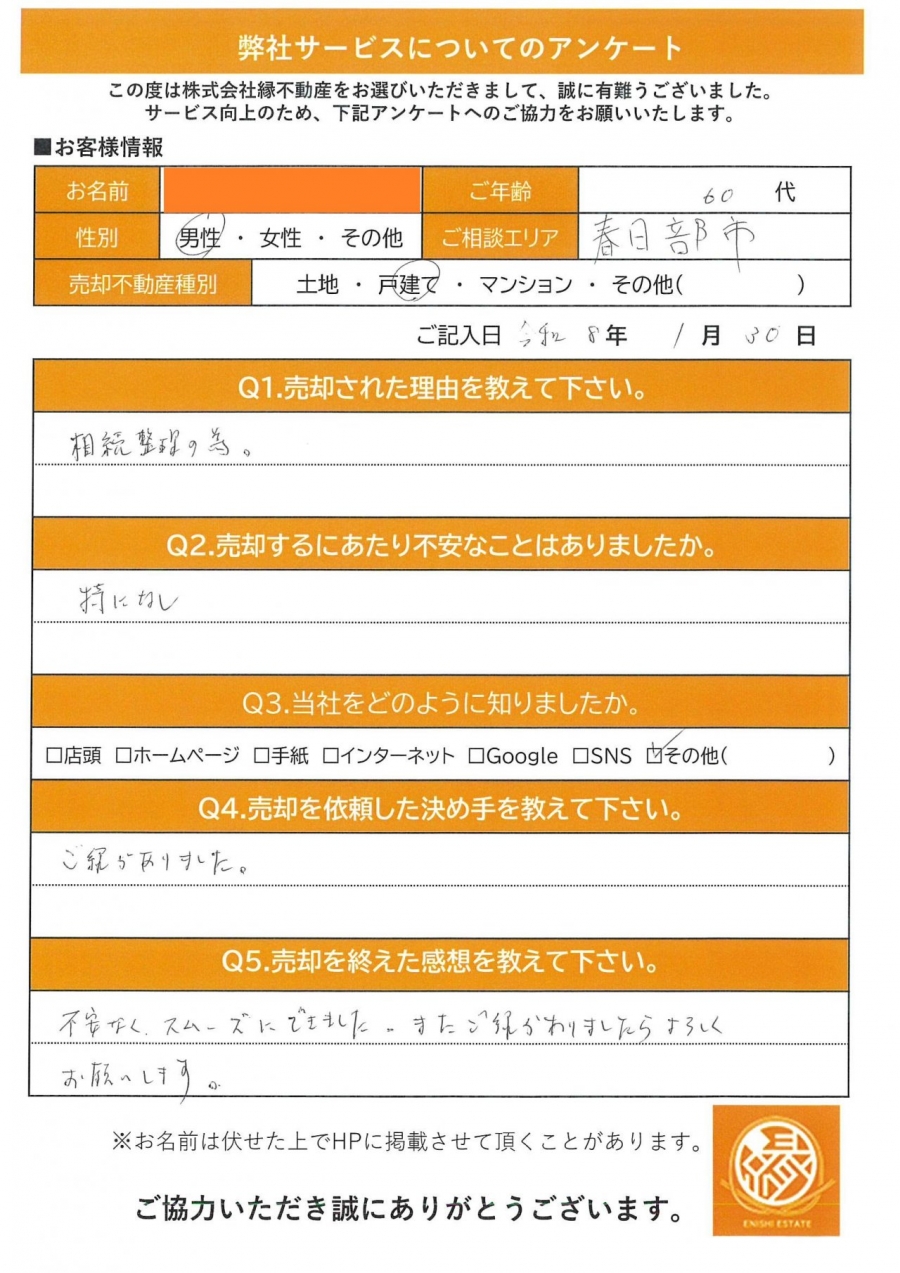 弊社サービスについてのアンケート
この度は株式会社縁不動産をお選びいただきまして、誠に有難うございました。
サービス向上のため、下記アンケートへのご協力をお願いいたします。
■お客様情報
お名前 ご年齢 60 代
性別 男性 ・ 女性 ・ その他 ご相談エリア 春日部市
売却不動産種別 土地 ・ 戸建て ・ マンション ・ その他( )
ご記入日 令和 8年 1月 30日
Q1.売却された理由を教えて下さい。
相続整理の為。
Q2.売却するにあたり不安なことはありましたか。
特になし
Q3.当社をどのように知りましたか。
□店頭 □ホームページ □手紙 □インターネット □Google □SNS ☑その他( )
Q4.売却を依頼した決め手を教えて下さい。
ご縁がありました。
Q5.売却を終えた感想を教えて下さい。
不安なく、スムーズにできました。またご縁がありましたらよろしく
お願いします。
※お名前は伏せた上でHPに掲載させて頂くことがあります。
ご協力いただき誠にありがとうございます。
縁
ENISHI ESTATE